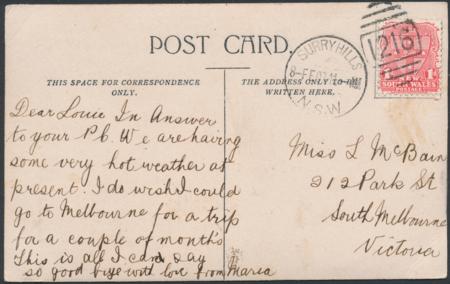 POST CARD.
THIS SPACE FOR CORRESPONDENCE
ONLY.
THE ADDRESS ONLY TO BE
WRITTEN HERE.
SURRY HILLS
N.S.W
1216
1D
SOUTH WALES
POSTAGE
Dear Louie In Answer
to your P.C. We are having
some very hot weather at
present. I do wish I could
go to Melbourne for a trip
for a couple of month's
This is all I can say
so good bye with love from Maria
Miss L McBain
212 Park St
South Melbourne
Victoria